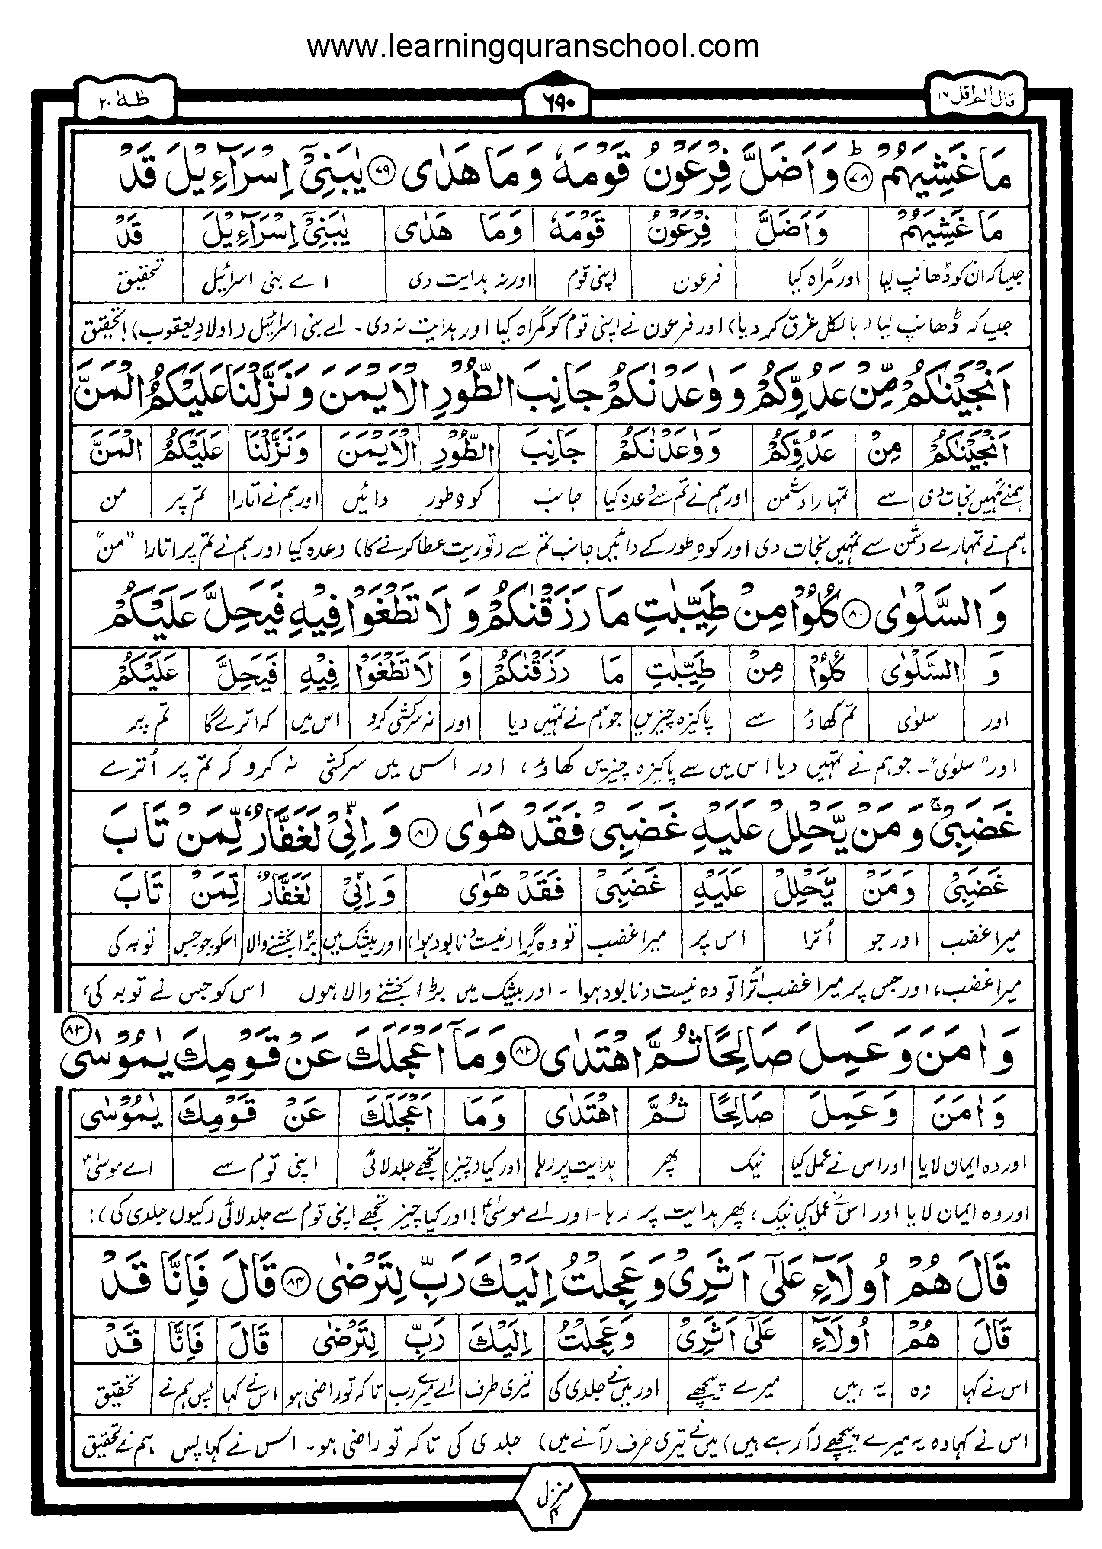 www.learningquranschool.com
طٰهٰ ٢٠
٦٩٠
قال الم اقل ١٦
مَا غَشِيَهُمْ ﴿٧٨﴾ وَ اَضَلَّ فِرْعَوْنُ قَوْمَهٗ وَ مَا هَدٰى ﴿٧٩﴾ يٰبَنِىْٓ اِسْرَآءِيْلَ قَدْ
مَا غَشِيَهُمْ وَ اَضَلَّ فِرْعَوْنُ قَوْمَهٗ وَمَا هَدٰى يٰبَنِىْٓ اِسْرَآءِيْلَ قَدْ
جیسا کہ ان کو ڈھانپ لیا اور گمراہ کیا فرعون اپنی قوم اور نہ ہدایت دی اے بنی اسرائیل تحقیق
جیسا کہ ڈھانپ لیا (بالکل غرق کر دیا) اور فرعون نے اپنی قوم کو گمراہ کیا اور ہدایت نہ دی۔ اے بنی اسرائیل (اولادِ یعقوب) تحقیق
اَنْجَيْنٰكُمْ مِّنْ عَدُوِّكُمْ وَ وٰعَدْنٰكُمْ جَانِبَ الطُّوْرِ الْاَيْمَنَ وَ نَزَّلْنَا عَلَيْكُمُ الْمَنَّ
اَنْجَيْنٰكُمْ مِنْ عَدُوِّكُمْ وَ وٰعَدْنٰكُمْ جَانِبَ الطُّوْرِ الْاَيْمَنَ وَ نَزَّلْنَا عَلَيْكُمُ الْمَنَّ
ہمنے تمہیں نجات دی سے تمہارا دشمن اور ہم نے تم سے وعدہ کیا جانب کوہ طور دائیں اور ہم نے اتارا تم پر من
ہم نے تمہارے دشمن سے تمہیں نجات دی اور کوہِ طور کے دائیں جانب تم سے (توریت عطا کرنے کا) وعدہ کیا اور ہم نے تم پر اتارا "من"
وَ السَّلْوٰى ﴿٨٠﴾ كُلُوْا مِنْ طَيِّبٰتِ مَا رَزَقْنٰكُمْ وَ لَا تَطْغَوْا فِيْهِ فَيَحِلَّ عَلَيْكُمْ
وَ السَّلْوٰى كُلُوْا مِنْ طَيِّبٰتِ مَا رَزَقْنٰكُمْ وَ لَا تَطْغَوْا فِيْهِ فَيَحِلَّ عَلَيْكُمْ
اور سلوٰی تم کھاؤ سے پاکیزہ چیزیں جو ہم نے تمہیں دیا اور نہ سرکشی کرو اس میں کہ اترے گا تم پر
اور "سلوٰی"۔ جو ہم نے تمہیں دیا اس میں سے پاکیزہ چیزیں کھاؤ، اور اس میں سرکشی نہ کرو کہ تم پر اُترے
غَضَبِىْ وَ مَنْ يَّحْلِلْ عَلَيْهِ غَضَبِىْ فَقَدْ هَوٰى ﴿٨١﴾ وَ اِنِّىْ لَغَفَّارٌ لِّمَنْ تَابَ
غَضَبِىْ وَ مَنْ يَّحْلِلْ عَلَيْهِ غَضَبِىْ فَقَدْ هَوٰى وَ اِنِّىْ لَغَفَّارٌ لِّمَنْ تَابَ
میرا غضب اور جو اُترا اس پر میرا غضب تو وہ گرا (نیست و نابود ہوا) اور بیشک میں بڑا بخشنے والا اسکو جو جس توبہ کی
میرا غضب، اور جس پر میرا غضب اُترا تو وہ نیست و نابود ہوا۔ اور بیشک میں بڑا بخشنے والا ہوں اس کو جس نے توبہ کی،
وَ اٰمَنَ وَ عَمِلَ صَالِحًا ثُمَّ اهْتَدٰى ﴿٨٢﴾ وَ مَآ اَعْجَلَكَ عَنْ قَوْمِكَ يٰمُوْسٰى ﴿٨٣﴾
وَ اٰمَنَ وَ عَمِلَ صَالِحًا ثُمَّ اهْتَدٰى وَ مَا اَعْجَلَكَ عَنْ قَوْمِكَ يٰمُوْسٰى
اور وہ ایمان لایا اور اس نے عمل کیا نیک پھر ہدایت پر رہا اور کیا (چیز) تجھے جلد لائی اپنی قوم سے اے موسیٰ
اور وہ ایمان لایا اور اس نے عمل کیا نیک، پھر ہدایت پر رہا۔ اور اے موسیٰ! اور کیا چیز تجھے اپنی قوم سے جلد لائی (کیوں جلدی کی)؟
قَالَ هُمْ اُولَآءِ عَلٰٓى اَثَرِىْ وَ عَجِلْتُ اِلَيْكَ رَبِّ لِتَرْضٰى ﴿٨٤﴾ قَالَ فَاِنَّا قَدْ
قَالَ هُمْ اُولَآءِ عَلٰٓى اَثَرِىْ وَ عَجِلْتُ اِلَيْكَ رَبِّ لِتَرْضٰى قَالَ فَاِنَّا قَدْ
اس نے کہا وہ یہ ہیں میرے پیچھے اور میں نے جلدی کی تیری طرف اے میرے رب تاکہ تو راضی ہو اس نے کہا پس ہم نے تحقیق
اس نے کہا وہ یہ میرے پیچھے (آرہے ہیں) میں نے تیری طرف (آنے میں) جلدی کی تاکہ تو راضی ہو۔ اس نے کہا پس ہم نے تحقیق
منزل ٤